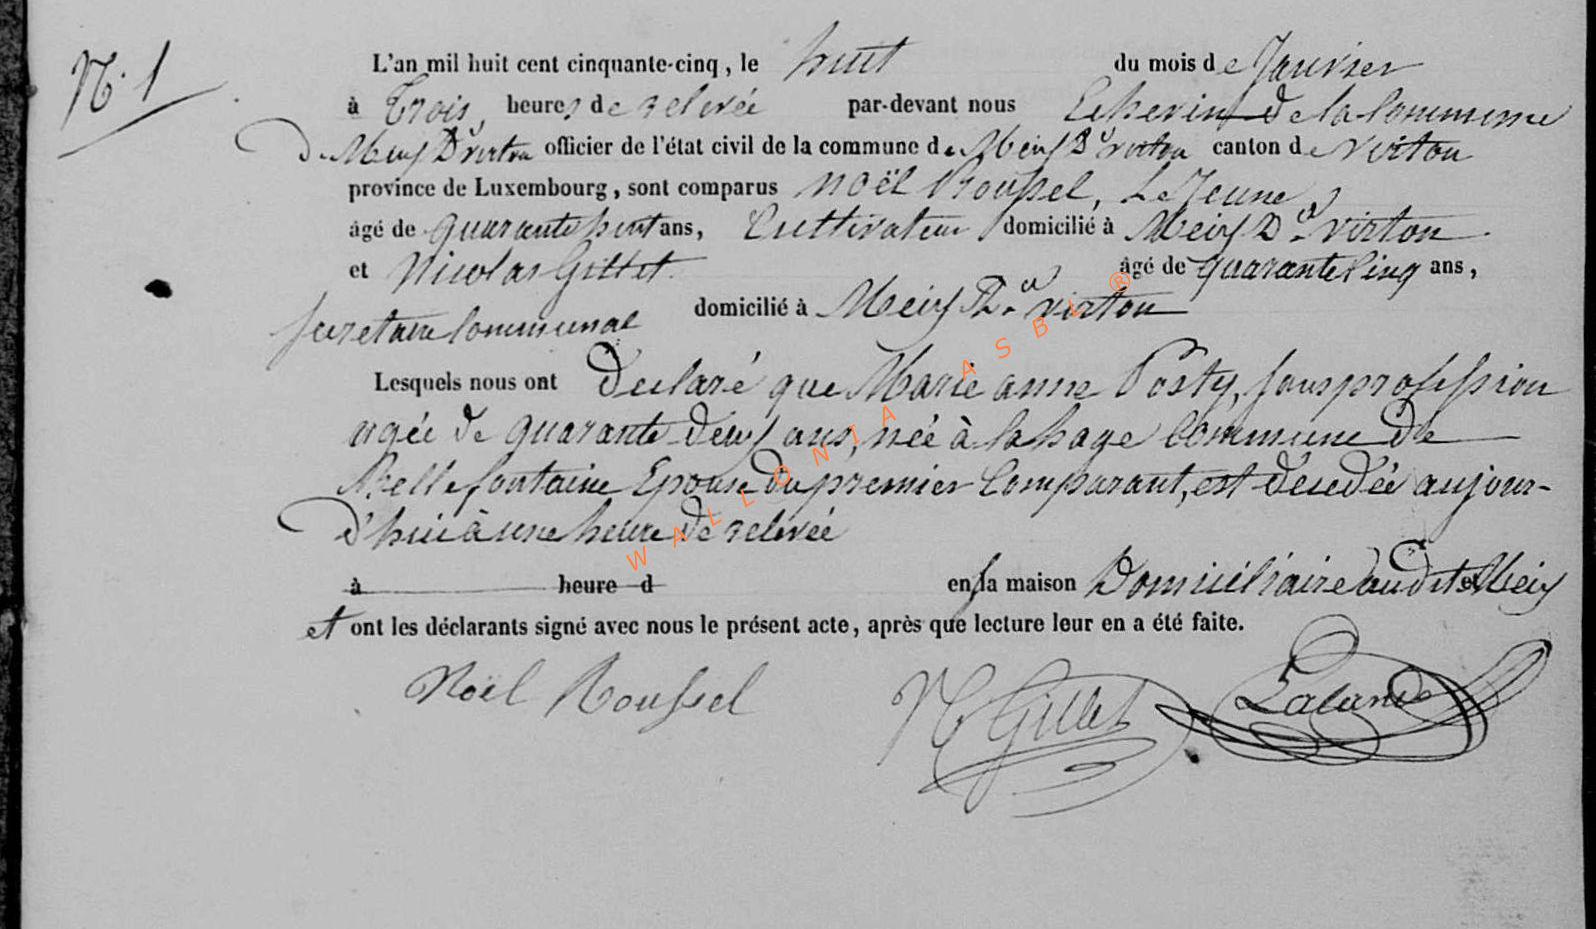 N.° 1
L'an mil huit cent cinquante-cinq, le huit du mois de Janvier
à trois, heures de relevée par-devant nous Echevin de la Commune
de Meix Dt virton officier de l'état civil de la commune de Meix Dt virton canton de virton
province de Luxembourg, sont comparus Noël Roussel, Le Jeune
âgé de quarante huit ans, Cultivateur domicilié à Meix Dt virton
et Nicolas Gillet âgé de quarante Cinq ans,
secretaire Communal domicilié à Meix Dt virton
Lesquels nous ont Declaré que Marie anne Posty, sans profession
agée de quarante deux ans, née à lahage Commune de
Bellefontaine Epouse du premier Comparant, est décedée aujour-
d'hui à une heure de relevée
à heure d en sa maison Domiciliaire audit Meix
et ont les déclarants signé avec nous le présent acte, après que lecture leur en a été faite.
Noël Roussel N Gillet Lalande
WALLONIA ASBL ®